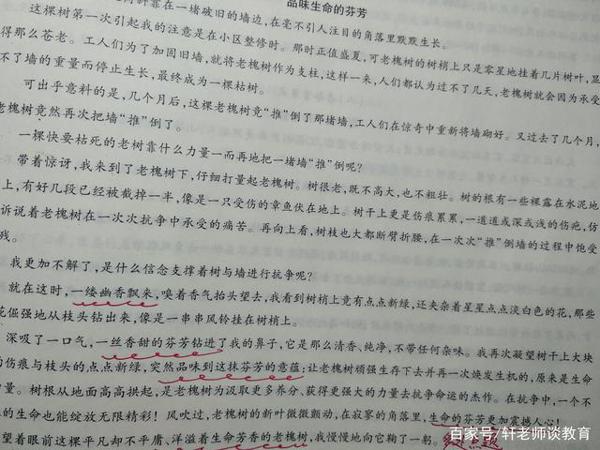 品味生命的芬芳
斜靠在一堵破旧的墙边,在毫不引人注目的角落里默默生长。
这棵树第一次引起我的注意是在小区整修时。那时正值盛夏,可老槐树的树梢上只是零星地挂着几片树叶,显
得那么苍老。工人们为了加固旧墙,就将老槐树作为支柱,这样一来,人们都认为过不了几天,老槐树就会因为承受
不了墙的重量而停止生长,最终成为一棵枯树。
可出乎意料的是,几个月后,这棵老槐树竟“推”倒了那堵墙,工人们在惊奇中重新将墙砌好。又过去了几个月,
老槐树竟然再次把墙“推”倒了。
一棵快要枯死的老树靠什么力量一而再地把一堵墙“推”倒呢?
带着惊讶,我来到了老槐树下,仔细打量起老槐树。树很老,既不高大,也不粗壮。树的根有一些裸露在水泥地
上,有好几段已经被截掉一半,像是一只受伤的章鱼伏在地上。树干上更是伤痕累累,一道道或深或浅的伤疤,仿
诉说着老槐树在一次次抗争中承受的痛苦。再向上看,树枝也大都断臂折腰,在一次次“推”倒墙的过程中饱受
残。
我更加不解了,是什么信念支撑着树与墙进行抗争呢?
就在这时,一缕幽香飘来,嗅着香气抬头望去,我看到树梢上竟有点点新绿,还夹杂着星星点点淡白色的花,那些
花倔强地从枝头钻出来,像是一串串风铃挂在树梢上。
深吸了一口气,一丝香甜的芬芳钻进了我的鼻子,它是那么清香、纯净,不带任何杂味。我再次凝望树干上大块
的伤痕与枝头的点点新绿,突然品味到这抹芬芳的意蕴:让老槐树顽强生存下去并再一次焕发生机的,原来是生命
量。树根从地面高高拱起,是老槐树为汲取更多养分、获得更强大的力量去抗争命运的杰作。在抗争中,一个不
的生命也能绽放无限精彩!风吹过,老槐树的新叶微微颤动,在寂寥的角落里,生命的芬芳更加震撼人心!
望着眼前这棵平凡却不平庸、洋溢着生命芳香的老槐树,我慢慢地向它鞠了一躬。
百家号/轩老师谈教育